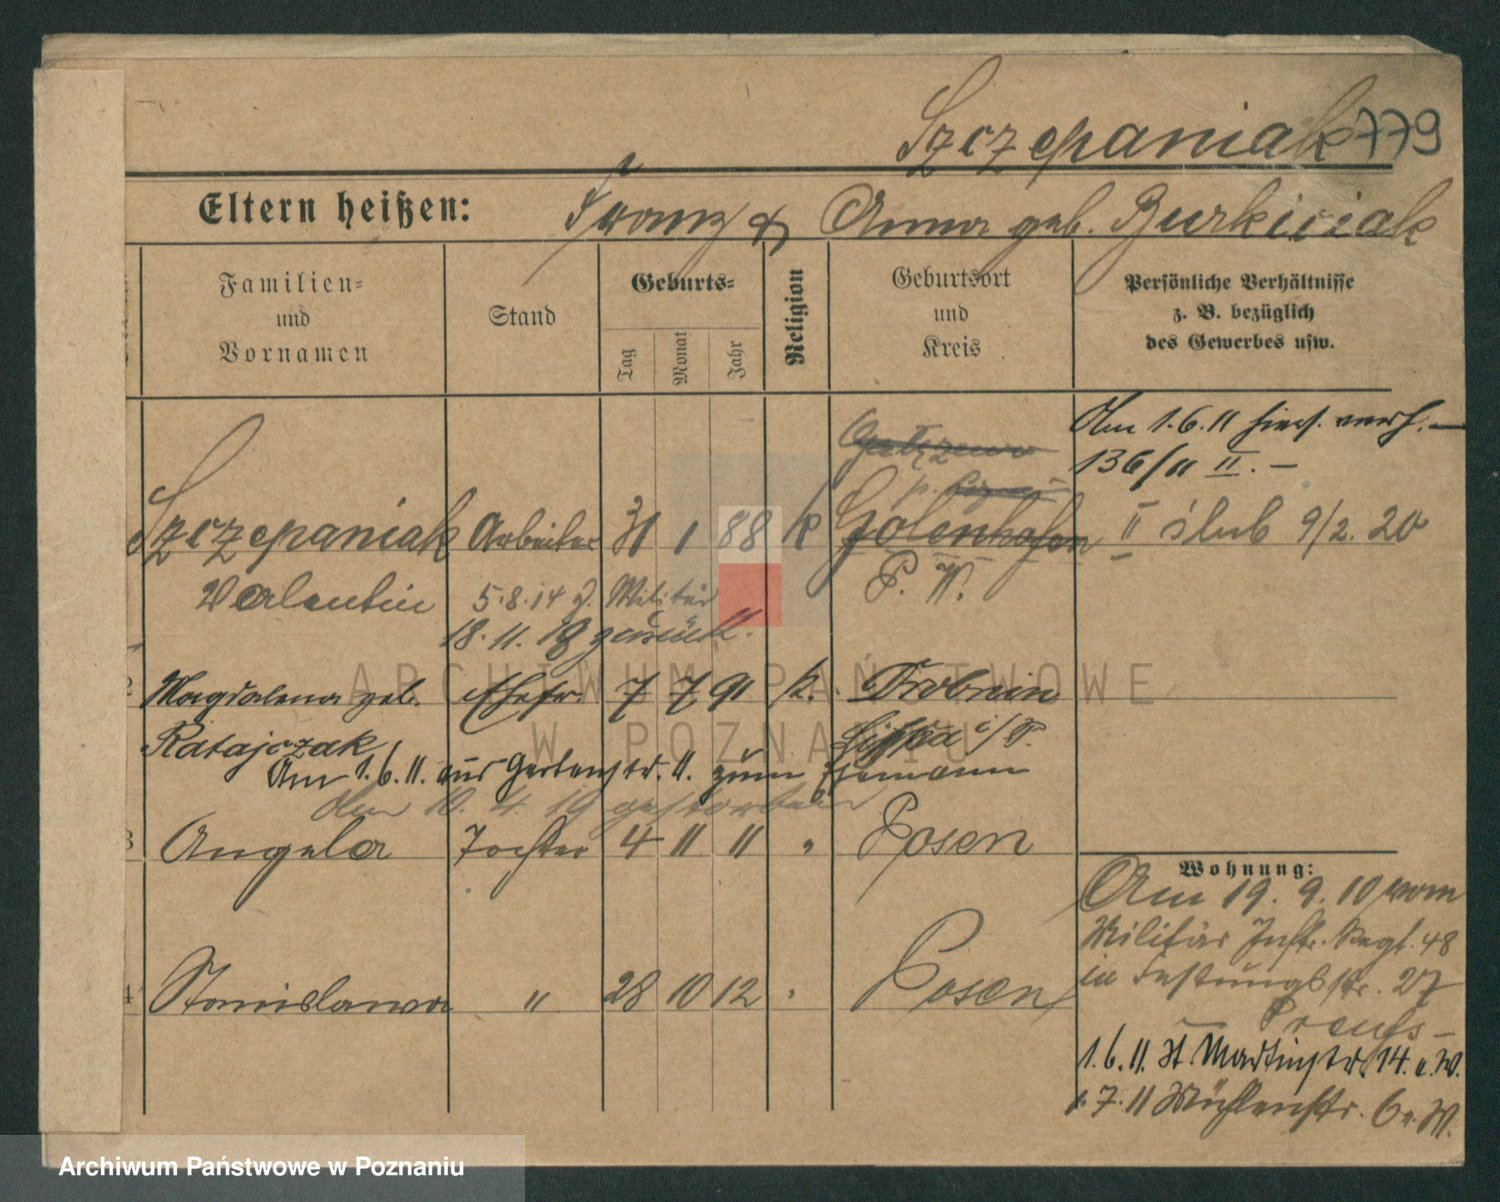 Szczepaniak 779
Eltern heißen: Franz & Anna geb. Burkiciak
Familien- und Vornamen
Stand
Geburts-
Tag
Monat
Jahr
Religion
Geburtsort und Kreis
Persönliche Verhältnisse
z. B. bezüglich
des Gewerbes usw.
Am 1.6.11 hier verh. —
136/11 II. —
Szczepaniak Arbeiter 31 1 88 k Golenhofen
II ślub 9/2. 20
Valentin 5.8.14 z. Militär P. W.
18.11.18 zurück.
2 Magdalena geb. Ehefr. 7 7 91 k. Drobnin
Ratajczak Lissa i/P.
Am 1.6.11. aus Gartenstr. 11. zum Ehemann
Am 10. 4. 19 gestorben
3 Angela Tochter 4 11 11 " Posen
4 Stanislawa " 28 10 12 " Posen
Wohnung:
Am 19. 9. 10 vom
Militär Inftr. Regt. 48
in Festungsstr. 27
1.6.11. St. Martinstr. 14. b. W.
1.7.11 Mühlenstr. 6 b. W.
ARCHIWUM PAŃSTWOWE
W POZNANIU
Archiwum Państwowe w Poznaniu